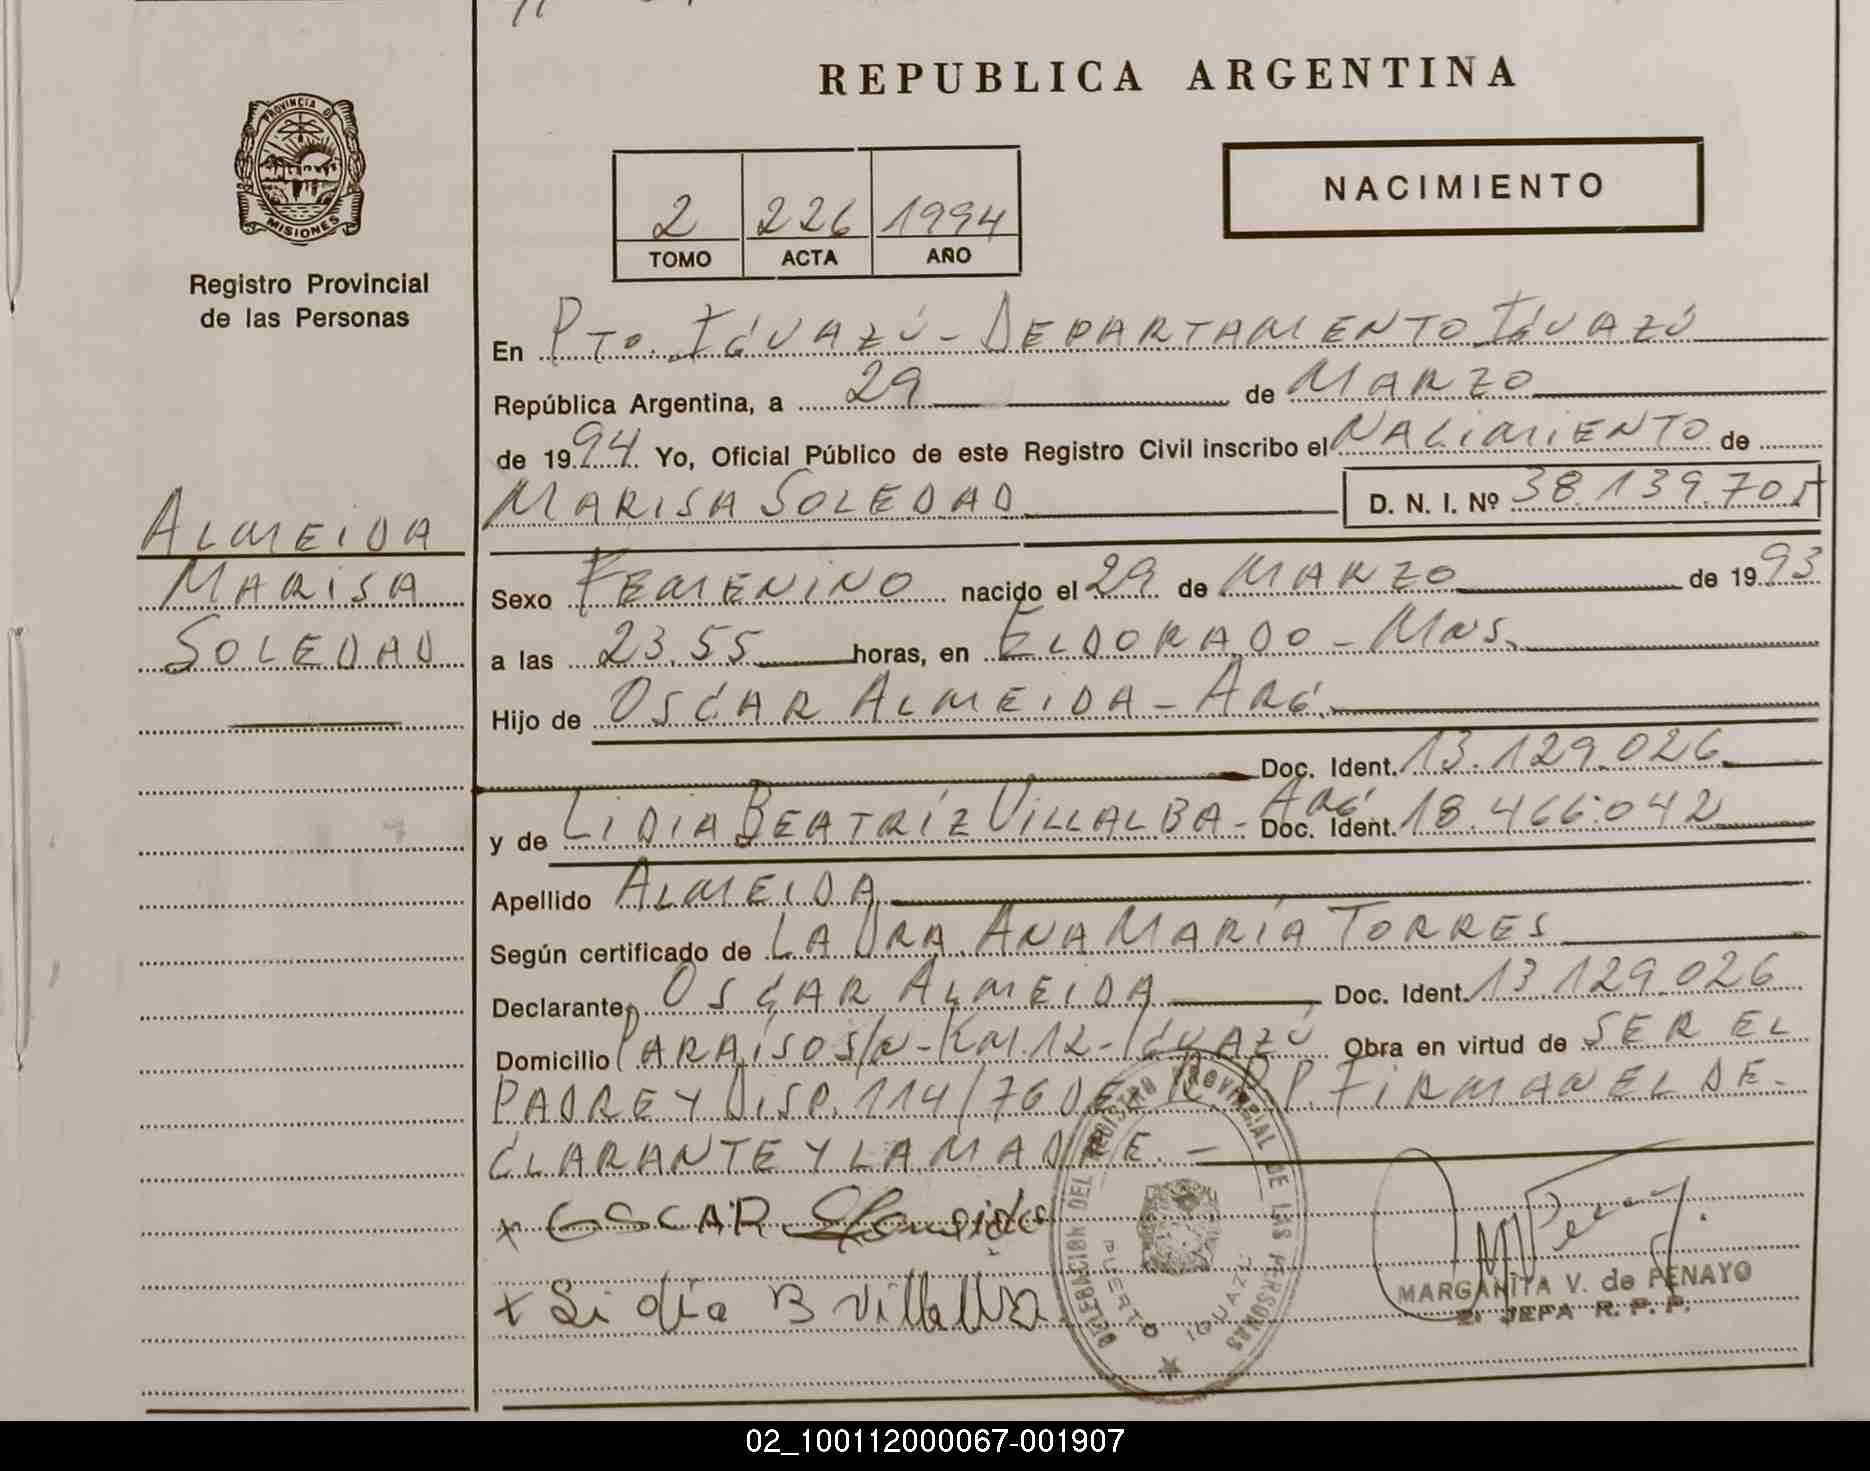 REPUBLICA ARGENTINA
PROVINCIA DE
MISIONES
Registro Provincial
de las Personas
NACIMIENTO
2 226 1994
TOMO ACTA AÑO
En Pto. Iguazú - Departamento Iguazú
República Argentina, a 29 de Marzo
de 1994 Yo, Oficial Público de este Registro Civil inscribo el Nacimiento de
Marisa Soledad D. N. I. Nº 38.139.705
Almeida
Marisa
Soledad
Sexo Femenino nacido el 29 de Marzo de 1993
a las 23.55 horas, en Eldorado - Mns.
Hijo de Oscar Almeida - Arg.
Doc. Ident. 13.129.026
y de Lidia Beatríz Villalba - Arg. Doc. Ident. 18.466.042
Apellido Almeida
Según certificado de La Dra. Ana María Torres
Declarante Oscar Almeida Doc. Ident. 13.129.026
Domicilio Paraíso s/n - Km. 12 - Iguazú Obra en virtud de ser el
padre y Disp. 114/76 del R.P.P. Firman el de-
clarante y la madre. -
x OSCAR Almeida
x Lidia B Villalba
DELEGACION DEL REGISTRO PROVINCIAL DE LAS PERSONAS
PUERTO IGUAZU
MARGARITA V. de PENAYO
2. JEFA R. P. P.
02_100112000067-001907